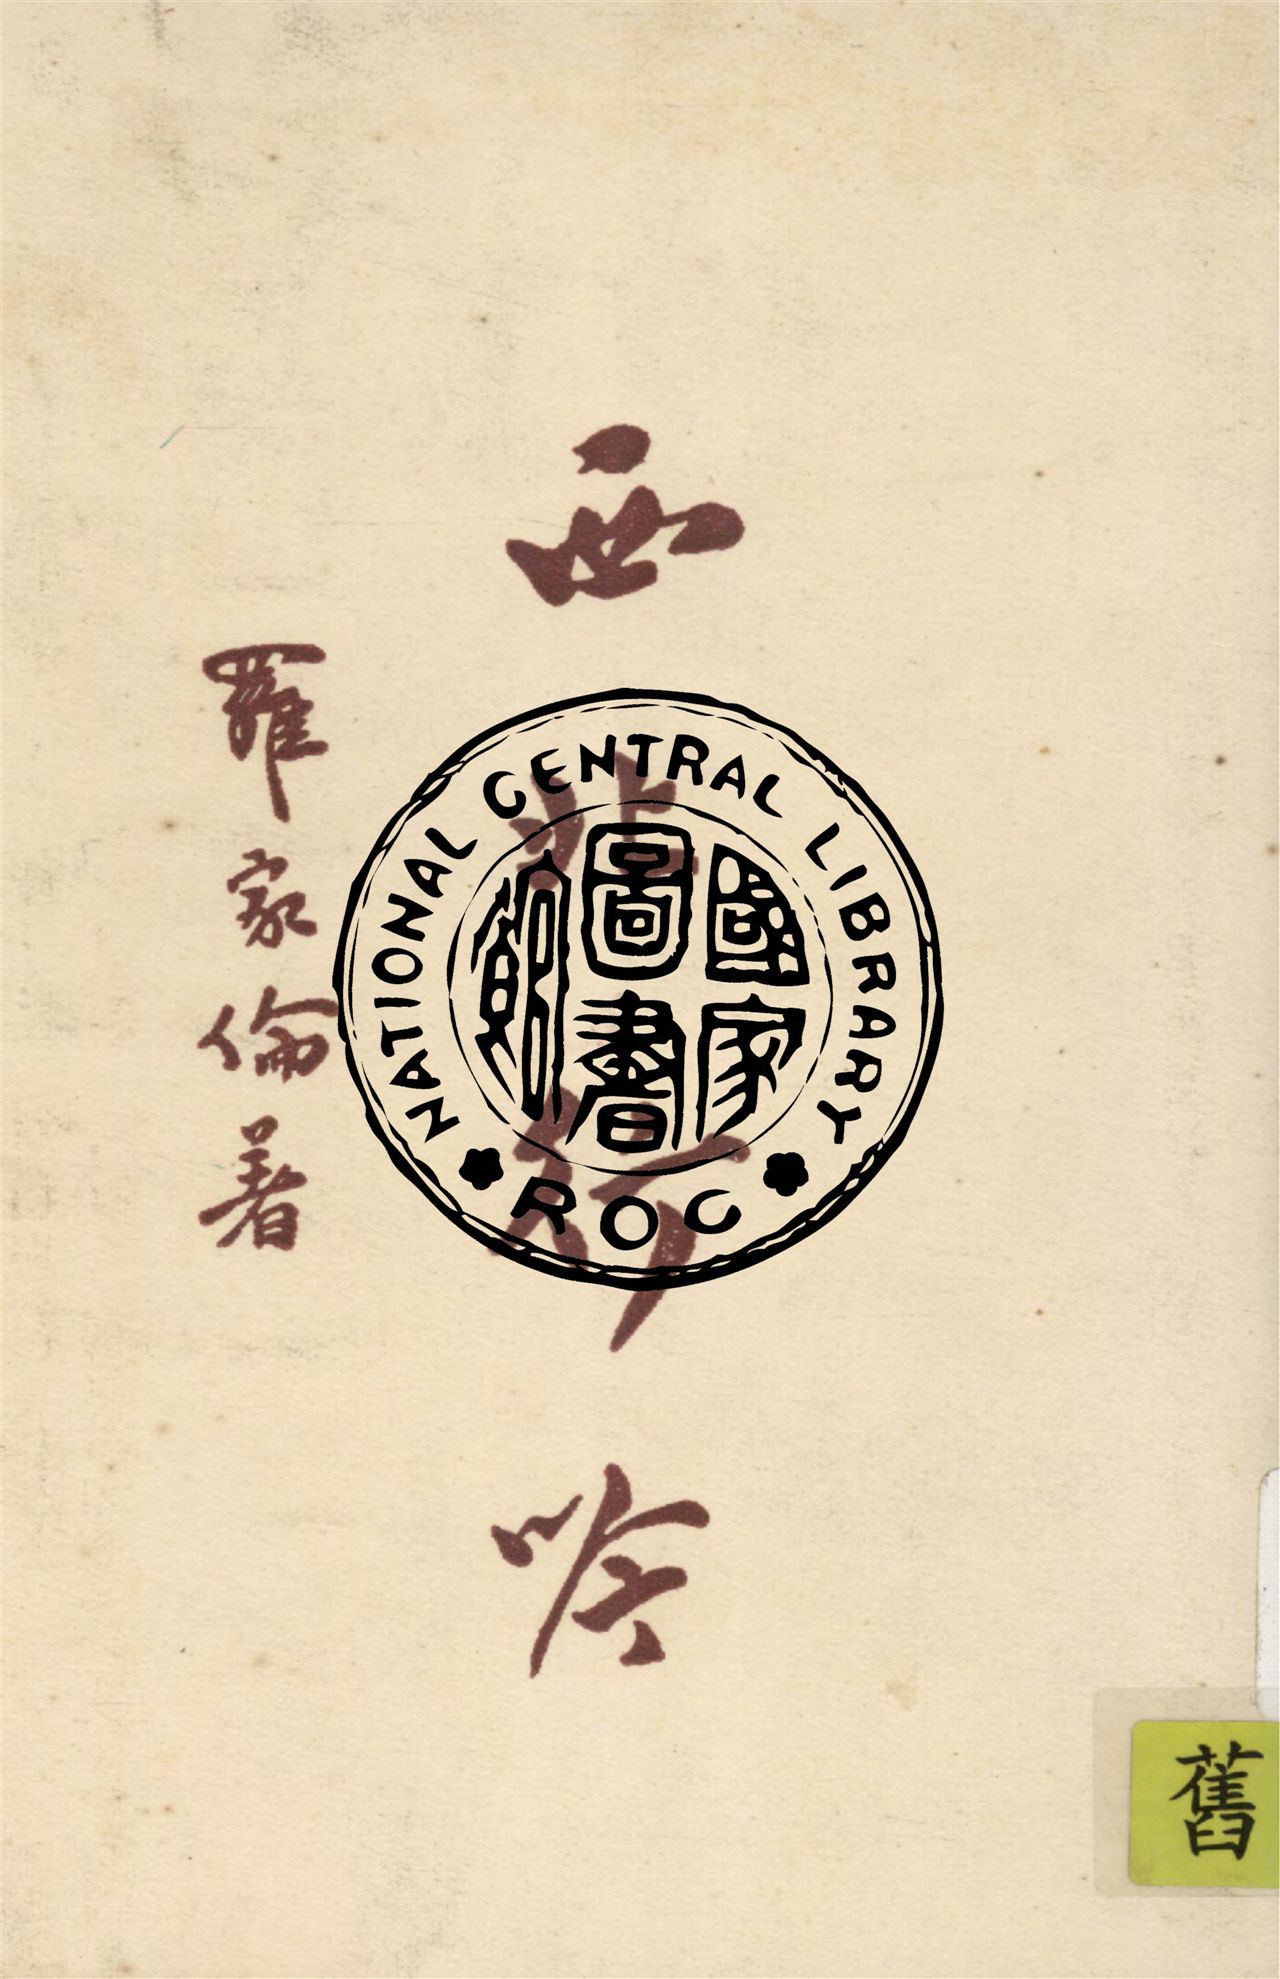 西北行吟
羅家倫著
NATIONAL CENTRAL LIBRARY
ROC
國家
圖書
館
舊